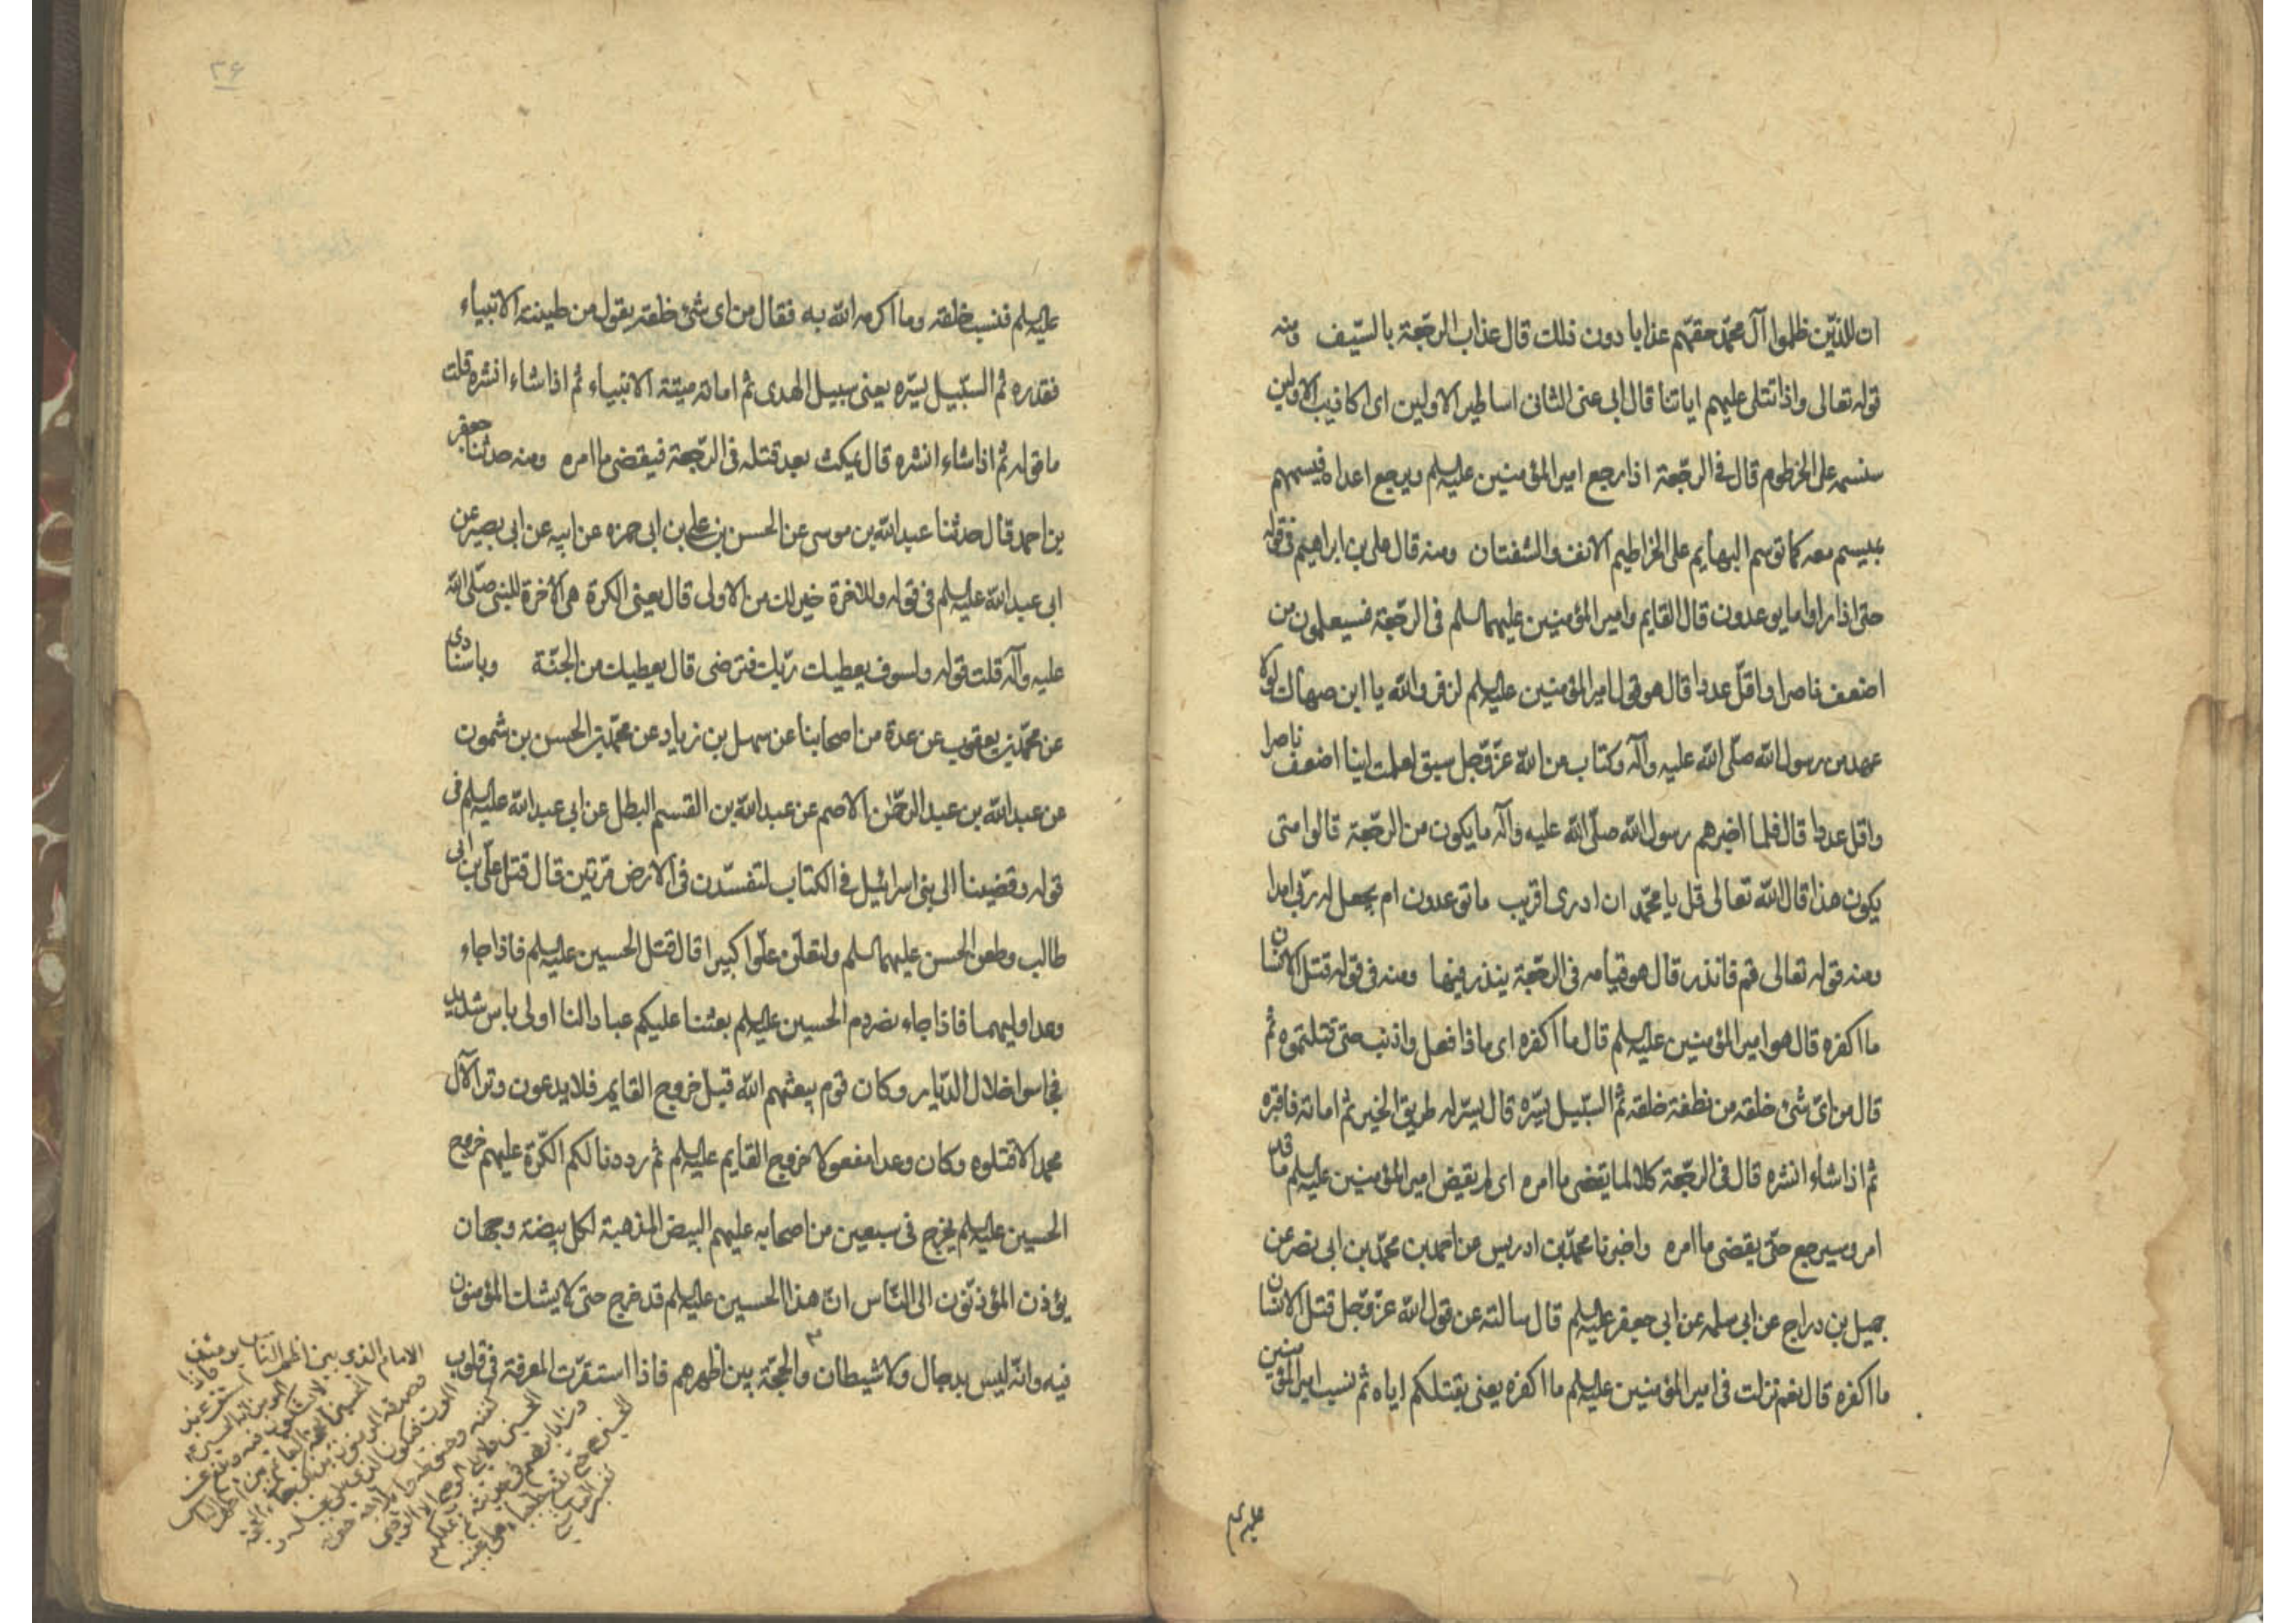 ان للذین ظلموا آل محمد حقهم عذابا دون ذلك قال عذاب الرجعة بالسیف ومنه
قوله تعالی واذا تتلی علیهم ایاتنا قال ابی عنی الثانی اساطیر الاولین ای اکاذیب الاولین
سنسمه علی الخرطوم قال فی الرجعة اذا رجع امیر المؤمنین علیه السلم ویرجع اعداه فیسمهم
بمیسم معه کما توسم البهایم علی الخراطیم الانف والشفتان ومنه قال علی بن ابراهیم فی قوله
حتی اذا راوا ما یوعدون قال القایم وامیر المؤمنین علیهما السلم فی الرجعة فسیعلمون من
اضعف ناصرا واقل عددا قال هو قول امیر المؤمنین علیه السلم لزفر والله یا ابن صهاك لولا
عهد من رسول الله صلی الله علیه وآله وکتاب من الله عز وجل سبق لعلمت اینا اضعف ناصرا
واقل عددا قال فلما اخبرهم رسول الله صلی الله علیه وآله ما یکون من الرجعة قالوا متی
یکون هذا قال الله تعالی قل یا محمد ان ادری اقریب ما توعدون ام یجعل له ربی امدا
ومنه قوله تعالی قم فانذر قال هو قیامه فی الرجعة ینذر فیها ومنه فی قوله قتل الانسان
ما اکفره قال هو امیر المؤمنین علیه السلم قال ما اکفره ای ماذا فعل واذنب حتی قتلتموه ثم
قال من ای شئ خلقه من نطفة خلقه ثم السبیل یسره قال یسر له طریق الخیر ثم اماته فاقبره
ثم اذا شاء انشره قال فی الرجعة کلا لما یقض ما امره ای لم یقض امیر المؤمنین علیه السلم ما قد
امر وسیرجع حتی یقضی ما امره واخبرنا محمد بن ادریس عن احمد بن محمد بن ابی نصر عن
جمیل بن دراج عن ابی سلمه عن ابی جعفر علیه السلم قال سالته عن قول الله عز وجل قتل الانسان
ما اکفره قال نعم نزلت فی امیر المؤمنین علیه السلم ما اکفره یعنی بقتلکم ایاه ثم نسب امیر المؤمنین
علیه السلم
۳۶
علیه السلم فنسب خلقه وما اکرمه الله به فقال من ای شئ خلقه یقول من طینة الانبیاء
فقدره ثم السبیل یسره یعنی سبیل الهدی ثم اماته میتة الانبیاء ثم اذا شاء انشره قلت
ما قوله ثم اذا شاء انشره قال یمکث بعد قتله فی الرجعة فیقضی ما امره ومنه حدثنا جعفر
بن احمد قال حدثنا عبد الله بن موسی عن الحسن بن علی بن ابی حمزه عن ابیه عن ابی بصیر عن
ابی عبد الله علیه السلم فی قوله وللاخرة خیر لك من الاولی قال یعنی الکرة هی الاخرة للنبی صلی الله
علیه وآله قلت قوله ولسوف یعطیك ربك فترضی قال یعطیك من الجنة وباسنادی
عن محمد بن یعقوب عن عدة من اصحابنا عن سهل بن زیاد عن محمد بن الحسن بن شمون
عن عبد الله بن عبد الرحمن الاصم عن عبد الله بن القسم البطل عن ابی عبد الله علیه السلم فی
قوله وقضینا الی بنی اسرائیل فی الکتاب لتفسدن فی الارض مرتین قال قتل علی بن ابی
طالب وطعن الحسن علیهما السلم ولتعلن علوا کبیرا قال قتل الحسین علیه السلم فاذا جاء
وعد اولیهما فاذا جاء نصر دم الحسین علیه السلم بعثنا علیکم عبادا لنا اولی باس شدید
فجاسوا خلال الدیار وکان قوم یبعثهم الله قبل خروج القایم فلا یدعون وترا لآل
محمد الا قتلوه وکان وعدا مفعولا خروج القایم علیه السلم ثم رددنا لکم الکرة علیهم خروج
الحسین علیه السلم یخرج فی سبعین من اصحابه علیهم البیض المذهبة لکل بیضة وجهان
یؤذن المؤذنون الی الناس ان هذا الحسین علیه السلم قد خرج حتی لا یشك المؤمنون
فیه وانه لیس بدجال ولا شیطان والحجة بین اظهرهم فاذا استقرت المعرفة فی قلوب
الامام الذی بین اظهر الناس